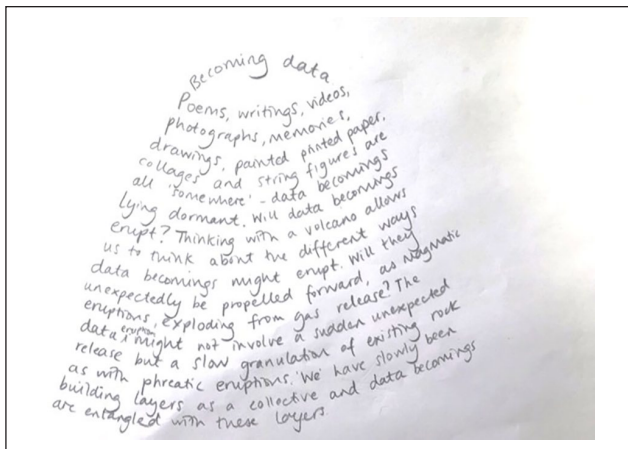 Becoming data
Poems, writings, videos,
photographs, memories,
drawings, painted printed paper,
collages and string figures are
all 'somewhere' - data becomings
lying dormant. Will data becomings
erupt? Thinking with a volcano allows
us to think about the different ways
data becomings might erupt. Will they
unexpectedly be propelled forward, as magmatic
eruptions, exploding from gas release? The
data eruption might not involve a sudden unexpected
release but a slow granulation of existing rock
as with phreatic eruptions. 'We' have slowly been
building layers as a collective and data becomings
are entangled with these layers